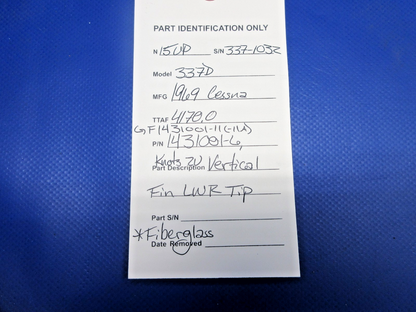 PART IDENTIFICATION ONLY
N 15UP S/N 337-1032
Model 337D
MFG 1969 Cessna
TTAF 4170.0
GF1431001-11(-11A)
P/N 1431001-6,
Knots 2U Vertical
Part Description
Fin LWR Tip
Part S/N
*Fiberglass
Date Removed